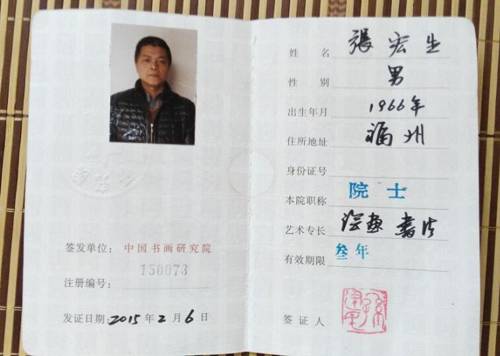 签发单位：中国书画研究院
注册编号：150073
发证日期 2015 年 2 月 6 日
姓 名 張宏生
性 别 男
出生年月 1966年
住所地址 福州
身份证号
本院职称 院士
艺术专长 绘画 書法
有效期限 叁年
签证人